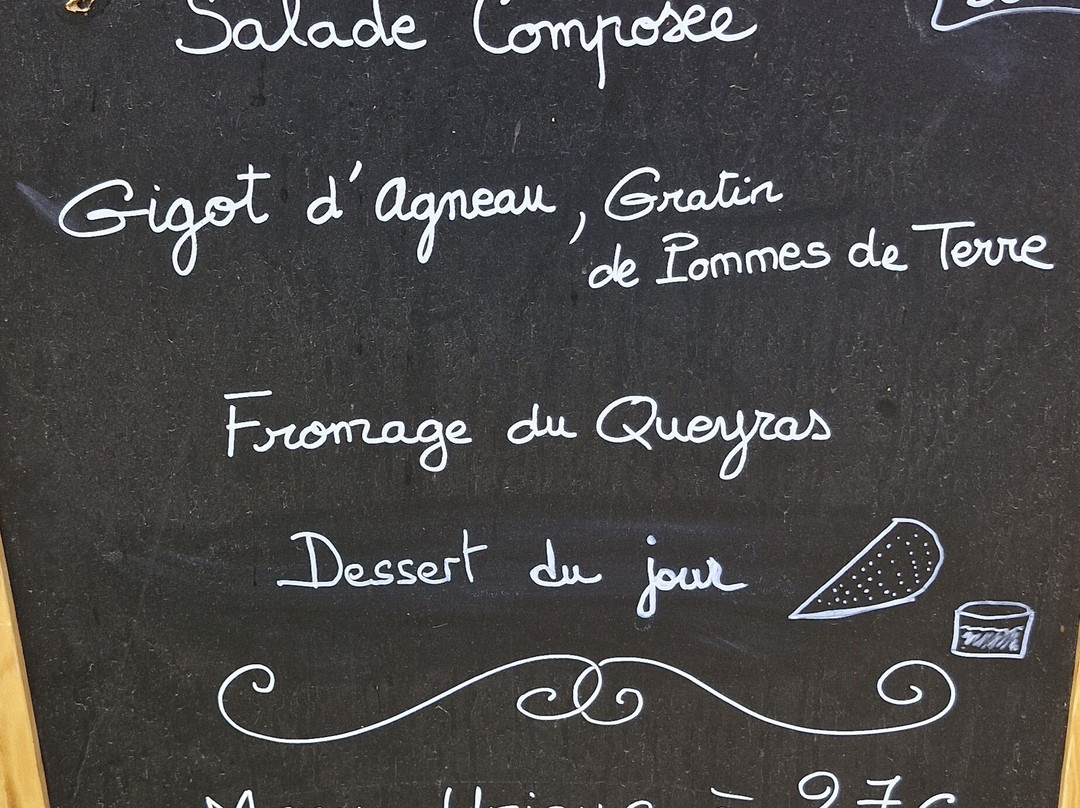 Salade Composée
Gigot d'Agneau, Gratin
de Pommes de Terre
Fromage du Queyras
Dessert du jour